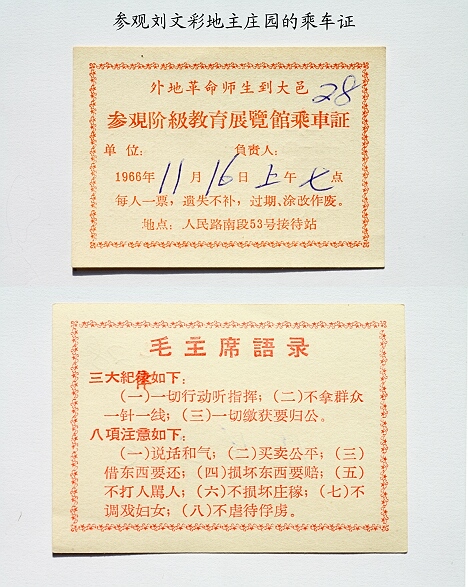 参观刘文彩地主庄园的乘车证
外地革命师生到大邑
28
参观阶級教育展覽館乘車証
单 位: 负责人:
1966年 11 月 16 日 上 午 七 点
每人一票，遺失不补，过期、涂改作废。
地点：人民路南段53号接待站
毛主席語录
三大紀律如下：
(一)一切行动听指揮；(二)不拿群众
一针一线；(三)一切缴获要归公。
八項注意如下：
(一)说话和气；(二)买卖公平；(三)
借东西要还；(四)损坏东西要赔；(五)
不打人駡人；(六)不损坏庄稼；(七)不
调戏妇女；(八)不虐待俘虏。